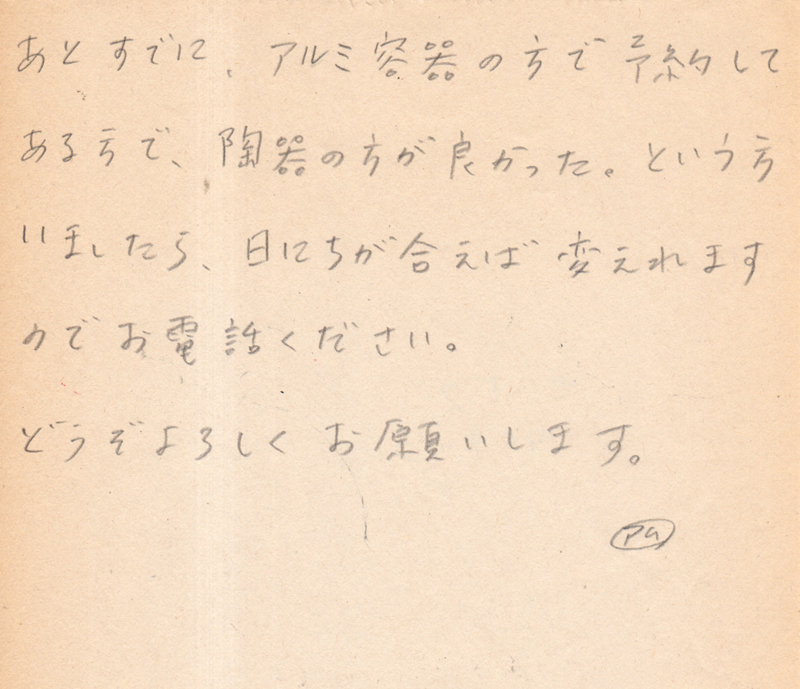 あとすでに、アルミ容器の方で予約して
ある方で、陶器の方が良かった。という方
いましたら、日にちが合えば変えれます
のでお電話ください。
どうぞよろしくお願いします。